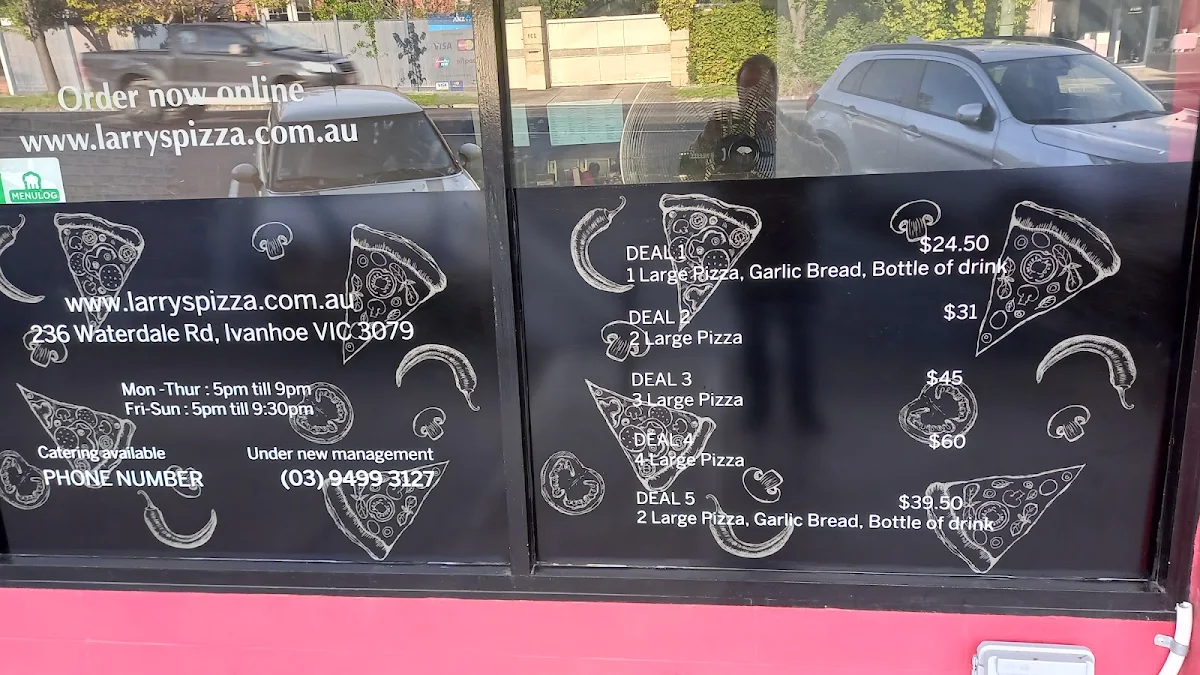 Order now online
www.larryspizza.com.au
MENULOG
www.larryspizza.com.au
236 Waterdale Rd, Ivanhoe VIC 3079
Mon -Thur : 5pm till 9pm
Fri-Sun : 5pm till 9:30pm
Catering available
Under new management
PHONE NUMBER
(03) 9499 3127
VISA
DEAL 1 $24.50
1 Large Pizza, Garlic Bread, Bottle of drink
DEAL 2 $31
2 Large Pizza
DEAL 3 $45
3 Large Pizza
DEAL 4 $60
4 Large Pizza
DEAL 5 $39.50
2 Large Pizza, Garlic Bread, Bottle of drink